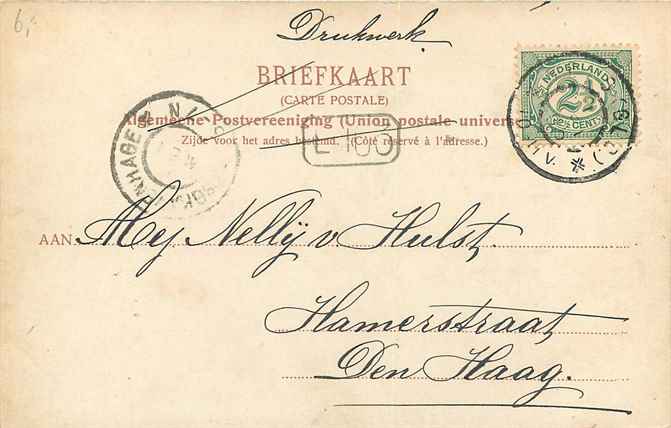 6,-
Drukwerk
BRIEFKAART
(CARTE POSTALE)
Algemeene Postvereeniging (Union postale universe
Zijde voor het adres bestemd. (Côté réservé à l'adresse.)
NEDERLAND
2½
CENTS
AAN Mej Nelly v. Hulst.
Hamerstraat
Den Haag.